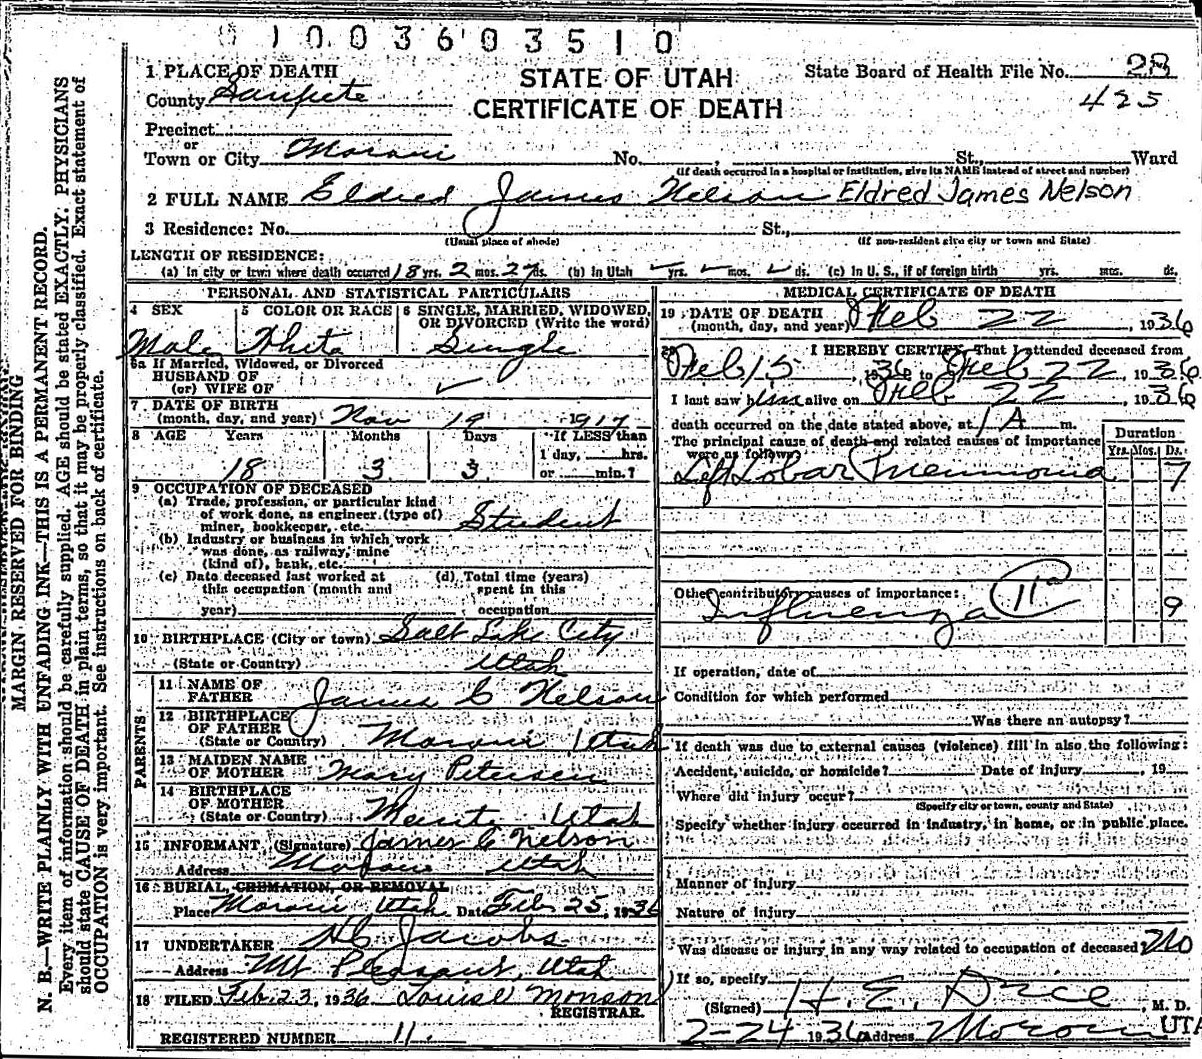 1003603510
1 PLACE OF DEATH
STATE OF UTAH
CERTIFICATE OF DEATH
State Board of Health File No. 28
425
County Sanpete
Precinct
or
Town or City Moroni No. , St., Ward
(If death occurred in a hospital or institution, give its NAME instead of street and number)
2 FULL NAME Eldred James Nelson Eldred James Nelson
3 Residence: No. St.,
(Usual place of abode) (If non-resident give city or town and State)
LENGTH OF RESIDENCE:
(a) In city or town where death occurred 18 yrs. 2 mos. 27 ds. (b) In Utah yrs. mos. ds. (c) In U. S., if of foreign birth yrs. mos. ds.
PERSONAL AND STATISTICAL PARTICULARS
4 SEX 5 COLOR OR RACE 6 SINGLE, MARRIED, WIDOWED,
OR DIVORCED (Write the word)
Male White Single
6a If Married, Widowed, or Divorced
HUSBAND OF
(or) WIFE OF
7 DATE OF BIRTH
(month, day, and year) Nov 19 1917
8 AGE Years Months Days If LESS than
1 day, hrs.
18 3 3 or min.?
9 OCCUPATION OF DECEASED
(a) Trade, profession, or particular kind
of work done, as engineer (type of)
miner, bookkeeper, etc. Student
(b) Industry or business in which work
was done, as railway, mine
(kind of), bank, etc.
(c) Date deceased last worked at (d) Total time (years)
this occupation (month and spent in this
year) occupation
10 BIRTHPLACE (City or town) Salt Lake City
(State or Country) Utah
PARENTS
11 NAME OF
FATHER James C Nelson
12 BIRTHPLACE
OF FATHER
(State or Country) Moroni Utah
13 MAIDEN NAME
OF MOTHER Mary Petersen
14 BIRTHPLACE
OF MOTHER
(State or Country) Utah
15 INFORMANT (Signature) James C Nelson
Address Moroni Utah
16 BURIAL, CREMATION, OR REMOVAL
Place Moroni Utah Date Feb 25, 1936
17 UNDERTAKER Jacobs
Address Mt Pleasant, Utah
18 FILED Feb. 23, 1936 Louise Monson
REGISTRAR.
REGISTERED NUMBER 11.
MEDICAL CERTIFICATE OF DEATH
19 DATE OF DEATH
(month, day, and year) Feb 22, 1936
20 I HEREBY CERTIFY, That I attended deceased from
Feb 15, 1936 to Feb 22, 1936
I last saw him alive on Feb 22 1936
death occurred on the date stated above, at 1 A m.
The principal cause of death and related causes of importance
were as follows:
Duration
Yrs. Mos. Ds.
Left Lobar Pneumonia 7
Other contributory causes of importance: 11a
Influenza 9
If operation, date of
Condition for which performed
Was there an autopsy?
If death was due to external causes (violence) fill in also the following:
Accident, suicide, or homicide? Date of injury , 19
Where did injury occur?
(Specify city or town, county and State)
Specify whether injury occurred in industry, in home, or in public place.
Manner of injury
Nature of injury
Was disease or injury in any way related to occupation of deceased No
If so, specify
(Signed) H. E. M. D.
2-24 1936 Address Moroni UTA
MARGIN RESERVED FOR BINDING
N. B.—WRITE PLAINLY WITH UNFADING INK—THIS IS A PERMANENT RECORD.
Every item of information should be carefully supplied. AGE should be stated EXACTLY. PHYSICIANS
should state CAUSE OF DEATH in plain terms, so that it may be properly classified. Exact statement of
OCCUPATION is very important. See instructions on back of certificate.